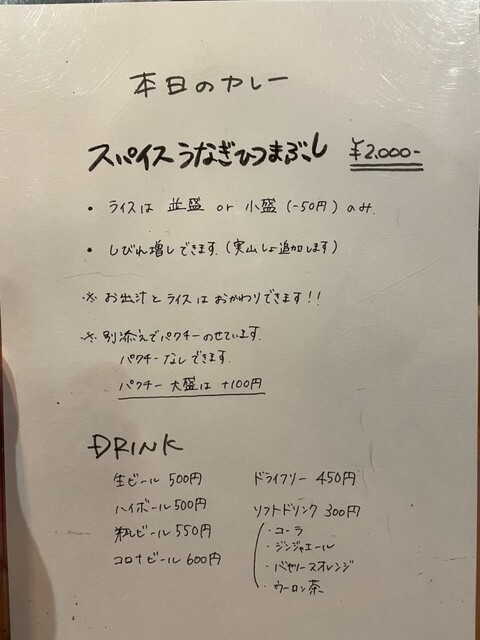 本日のカレー
スパイスうなぎひつまぶし ¥2.000-
・ライスは 並盛 or 小盛(-50円)のみ.
・しびれ増しできます.(実山しょ追加します)
※お出汁とライスはおかわりできます!!
※別添えでパクチーのせています.
パクチーなしできます.
パクチー大盛は +100円
DRINK
生ビール 500円 ドライフリー 450円
ハイボール 500円 ソフトドリンク 300円
瓶ビール 550円 ・コーラ
・ジンジャエール
コロナビール 600円 ・バヤリースオレンジ
・ウーロン茶